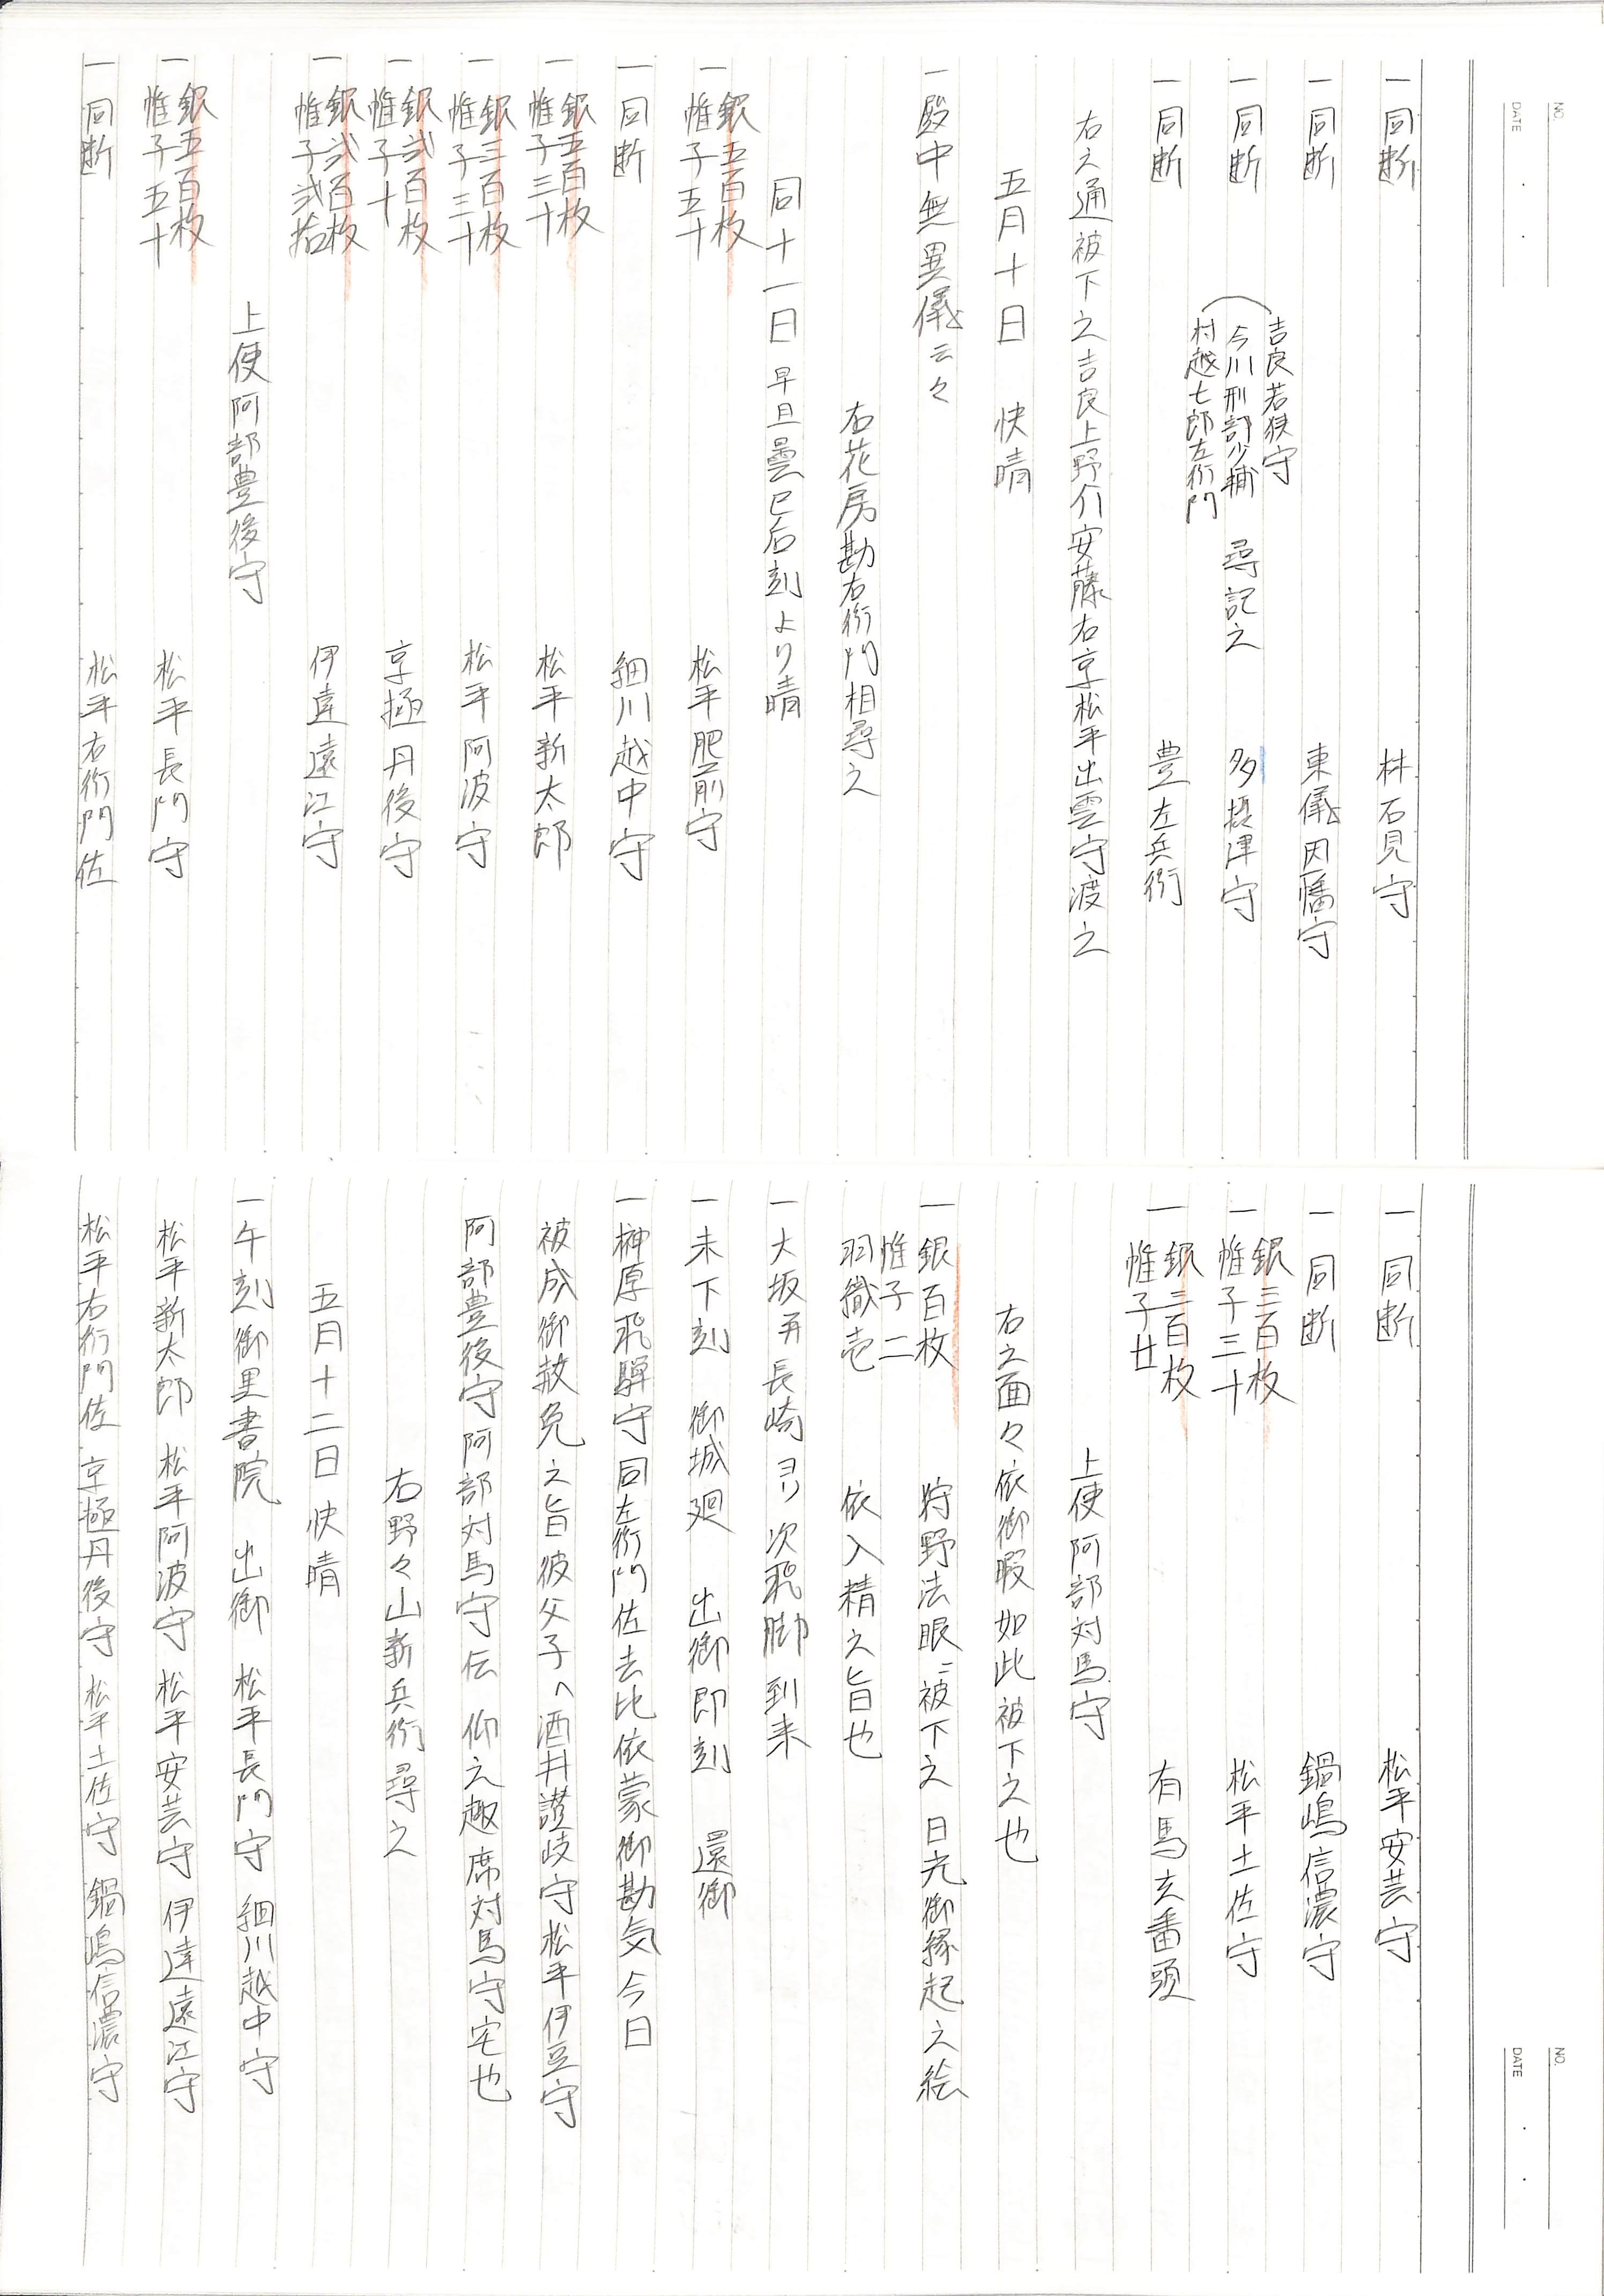 NO.
DATE
一同断 林石見守
一同断 東儀因幡守
吉良若狭守
一同断 今川刑部少輔 尋記之 多摂津守
村越七郎左衛門
一同断 豊左兵衛
右之通被下之吉良上野介安藤右京松平出雲守渡之
五月十日 快晴
一殿中無異儀云々
右花房勘右衛門相尋之
同十一日早旦曇巳后刻より晴
一銀五百枚 帷子五十 松平肥前守
一同断 細川越中守
一銀五百枚 帷子三十 松平新太郎
一銀三百枚 帷子三十 松平阿波守
一銀弐百枚 帷子十 京極丹後守
一銀弐百枚 帷子弐拾 伊達遠江守
上使阿部豊後守
一銀五百枚 帷子五十 松平長門守
一同断 松平右衛門佐
NO.
DATE
一同断 松平安芸守
一同断 鍋嶋信濃守
一銀三百枚 帷子三十 松平土佐守
一銀三百枚 帷子廿 有馬玄番頭
上使阿部対馬守
右之面々依御暇如此被下之也
一銀百枚 狩野法眼ニ被下之日光御縁起之絵
帷子二
羽織壱 依入精之旨也
一大坂再長崎ヨリ次飛脚到来
一未下刻 御城廻 出御即刻 還御
一榊原飛騨守同左衛門佐去比依蒙御勘気今日
被成御赦免之旨彼父子へ酒井讃岐守松平伊豆守
阿部豊後守阿部対馬守伝 仰之趣席対馬守宅也
右野々山新兵衛尋之
五月十二日快晴
一午刻御里書院 出御 松平長門守 細川越中守
松平新太郎 松平阿波守 松平安芸守 伊達遠江守
松平右衛門佐 京極丹後守 松平土佐守 鍋嶋信濃守